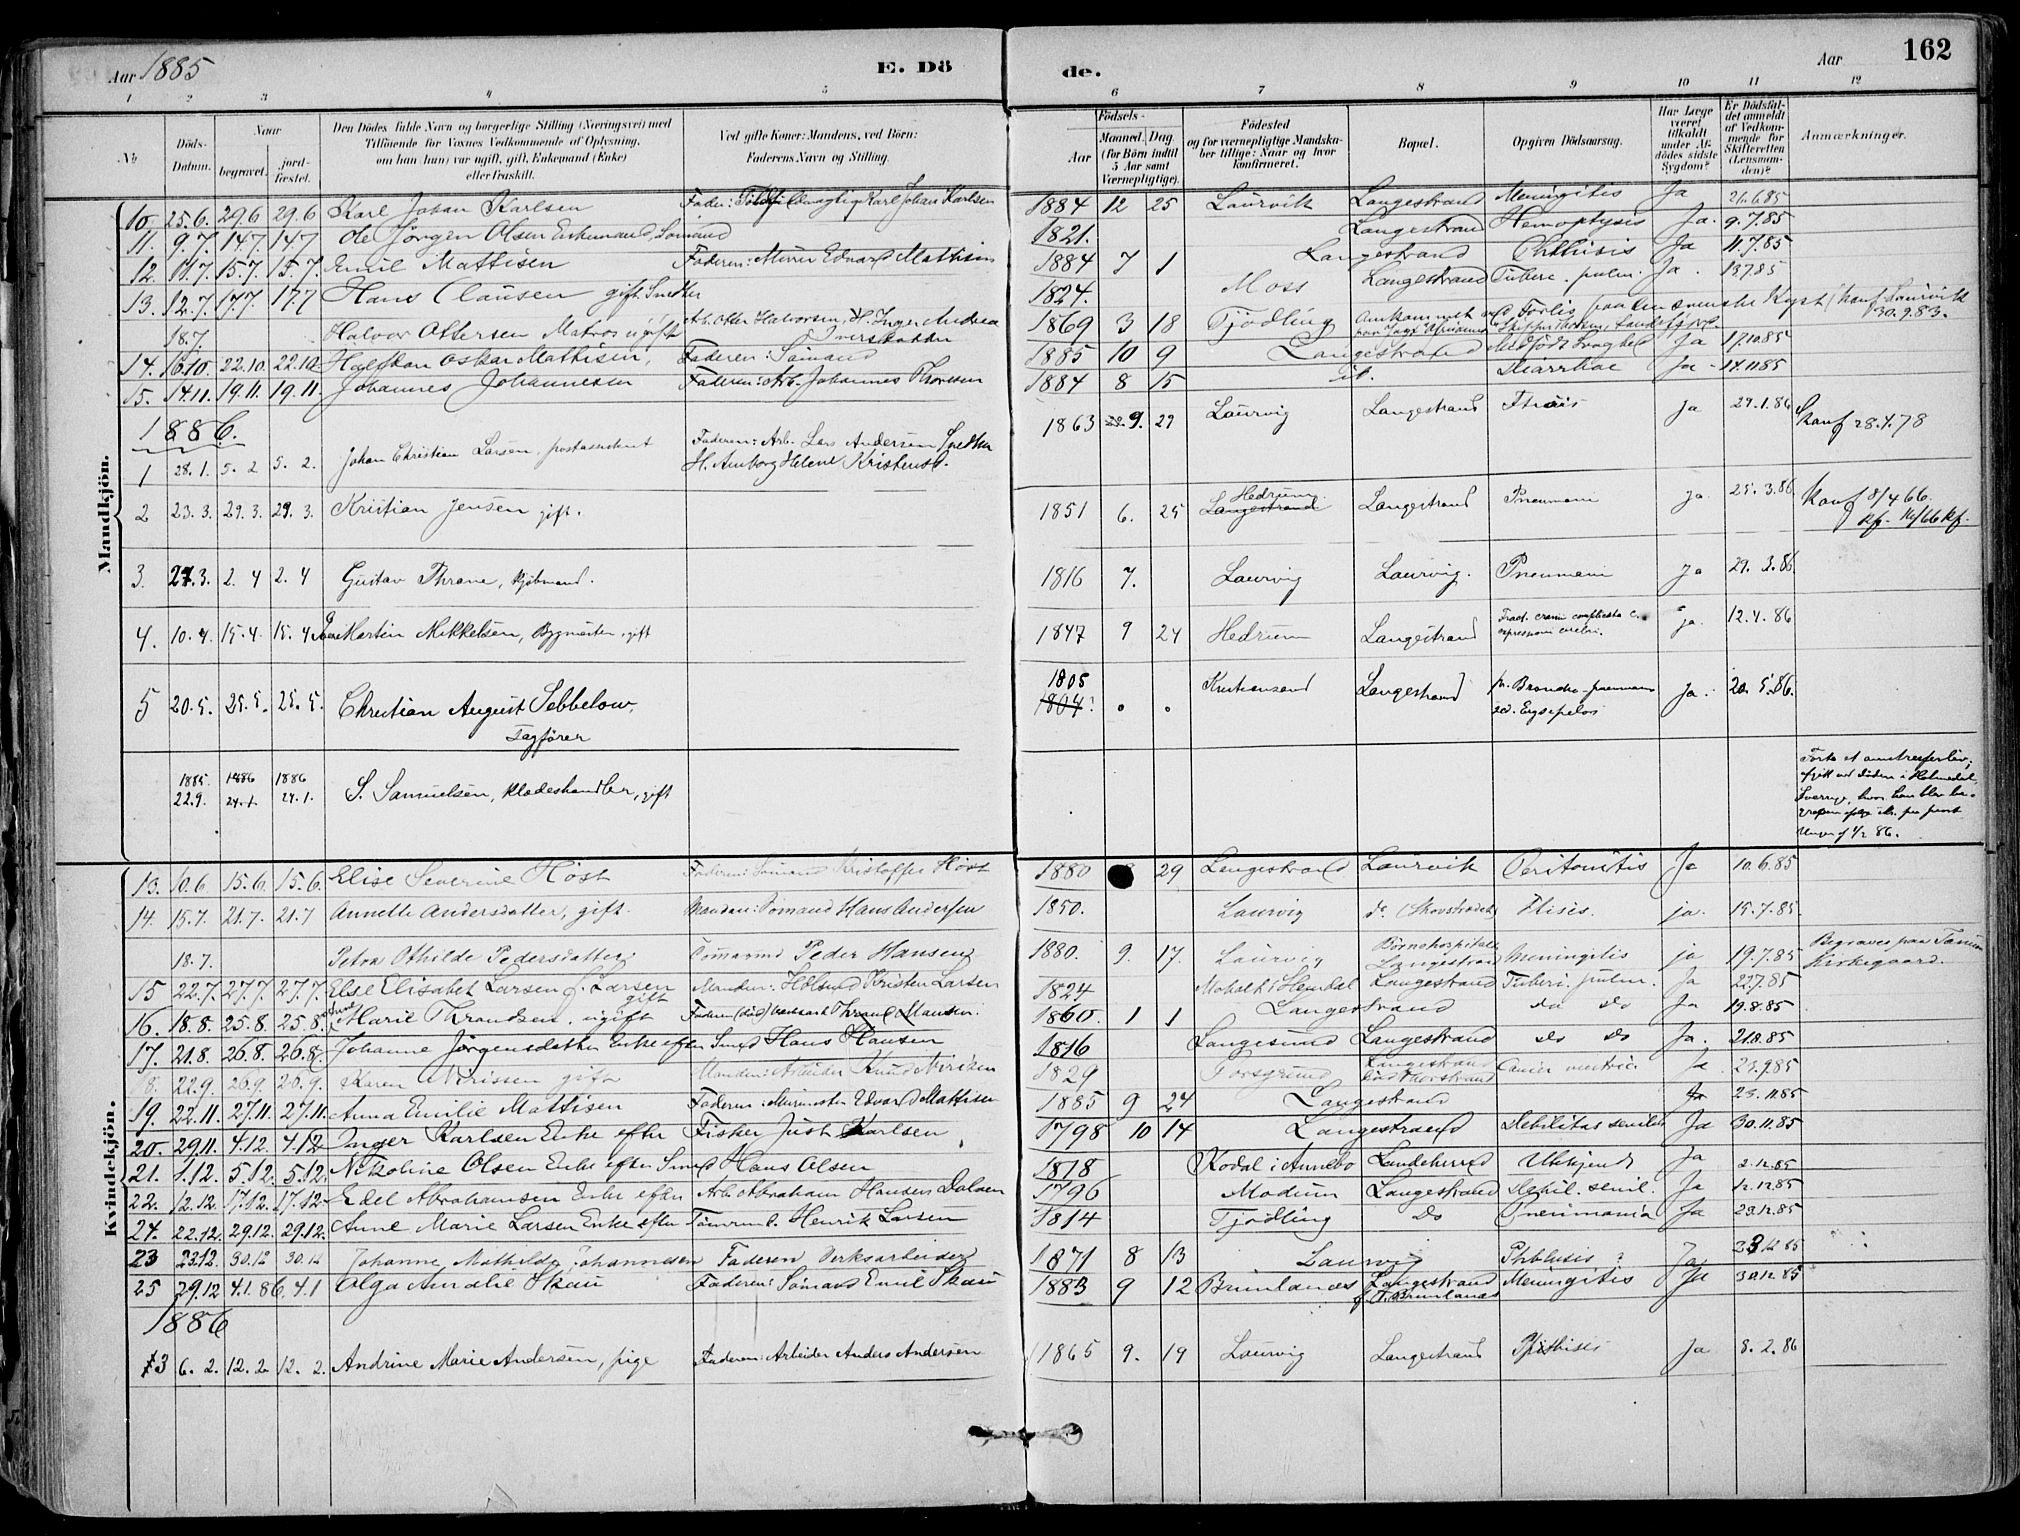 Aar 1885
E. Dö
de.
Aar
162
1 2 3 4 5 6 7 8 9 10 11 12
№
Döds-Datum.
Naar
begravet.
jord-fæstet.
Den Dödes fulde Navn og borgerlige Stilling (Næringsvei) med
Tilföiende for Voxnes Vedkommende af Oplysning,
om han (hun) var ugift, gift, Enkemand (Enke)
eller fraskilt.
Ved gifte Koner: Mandens, ved Börn:
Faderens Navn og Stilling.
Födsels-
Aar
Maaned. Dag
(for Börn indtil
5 Aar samt
Værnepligtige).
Födested
og for værnepligtige Mandska-
ber tillige: Naar og hvor
konfirmeret.
Bopæl.
Opgiven Dödsaarsag.
Har Læge
været
tilkaldt
under Af-
dödes sidste
Sygdom?
Er Dödsfal-
det anmeldt
af Vedkom-
mende for
Skifteretten
(Lensman-
den)?
Anmærkninger.
Mandkjön.
10. 25.6. 29.6 29.6 Karl Johan Karlsen Fader: Karl Johan Karlsen 1884 12 25 Laurvik Langestrand Meningitis Ja 26.6.85
11. 9.7. 14.7. 14.7 Ole Jörgen Olsen Enkemand, Sömand 1821. Langestrand Hemoptysis Ja. 9.7.85
12. 11.7. 15.7. 15.7. Emil Mattisen Faderen: Murer Edvard Mattisen 1884 7 1 Langestrand Phthisis Ja 11.7.85
13. 12.7. 17.7. 17.7 Hans Clausen gift. Snedker 1824. Moss Langestrand Tuberc. pulm. Ja. 13.7.85
18.7. Halvor Ottersen Matros ugift Arb. Otter Halvorsen, H. Inger Andrea Iversdatter 1869 3 18 Tjödling Omkommet ved Forlis paa den svenske Kyst Konf. Laurvik 30.9.83.
14. 16.10. 22.10. 22.10. Halfdan Oskar Mattisen, Faderen: Sömand 1885 10 9 Langestrand Medfödt Svaghed Ja 17.10.85
15. 14.11. 19.11. 19.11. Johannes Johannessen Faderen: Arb. Johannes Thoresen 1884 8 15 id. Diarrhoe Ja 14.11.85
1886.
1 28.1. 5.2 5.2. Johan Christian Larsen, postassistent Faderen: Arb. Lars Andersen Snedker H. Amborg Helene Kristensd. 1863 9. 29 Laurvig Langestrand Ja 29.1.86 Konf 28.4.78
2 23.3. 29.3. 29.3. Kristian Jensen gift. 1851 6. 25 Hedrum Langestrand Langestrand Pneumoni ja. 25.3.86 Konf 8/4 66.
3. 27.3. 2.4 2.4 Gustav Thrane, Kjöbmand. 1816 7. Laurvig Laurvig. Pneumoni ja 29.3.86
4. 10.4. 15.4. 15.4 Martin Mikkelsen, Bygmester, gift 1847 9 24 Hedrum Langestrand Fract. cranii complicata c. ja. 12.4.86
5 20.5. 25.5. 25.5. Christian August Sebbelow, Fagförer 1805 1804? Kristiansand Langestrand Broncho-pneumoni Ja. 20.5.86.
1885. 22.9. 1886 24.1. 1886 24.1. S. Samuelsen, Klædeshandler, gift
Kvindekjön.
13. 10.6. 15.6. 15.6. Elise Severine Höst Faderen: Sömand Kristoffer Höst 1880 29 Langestrand Laurvik Peritonitis Ja 10.6.85
14. 15.7. 21.7. 21.7 Annette Andersdatter, gift. Manden: Sömand Hans Andersen 1850. Laurvig do. Ftisis. ja. 15.7.85.
18.7. Petra Othilde Pedersdatter Tömmermd Peder Hansen 1880. 9. 17. Laurvig Börnehospitalet Langestrand Meningitis ja 19.7.85 Begraves paa Tanum Kirkegaard.
15 22.7. 27.7. 27.7. Else Elisabet Larsen f. Larsen gift Manden: Kristen Larsen 1824 Langestrand Tuberc. pulm. Ja 22.7.85
16. 18.8. 25.8. 25.8. Marie Thrandsen, ugift Faderen (död) 1860. 1 1 Langestrand do do Ja 19.8.85
17. 21.8. 26.8. 26.8. Johanne Jörgensdatter Enke efter Smed Hans Hansen 1816 Langesund Langestrand do do Ja. 21.8.85
22.9. 26.9. 26.9. Karen gift Manden: Arbeider Knud 1829 Langestrand Cancer ventric. Ja 23.9.85
19. 22.11. 27.11. 27.11. Anna Emilie Mattisen Faderen: Murmester Edvard Mattisen 1885 9 24 Langestrand Ja 23.11.85
20. 29.11. 4.12. 4.12 Inger Karlsen Enke efter Fisker Just Karlsen 1798 10 14 Langestrand Debilitas senilis Ja 30.11.85
21. 1.12. 5.12. 5.12. Nikoline Olsen Enke efter Smed Hans Olsen 1818 Kodal i Annebo Landeherred Ubekjendt Ja 2.12.85
22. 12.12. 17.12. 17.12. Edel Abrahamsen Enke efter Arb. Abraham Hansen Dalaen 1796 Modum Langestrand Debil. senil. Ja 12.12.85
24. 22.12. 29.12. 29.12. Anne Marie Larsen Enke efter Tömrmd. Henrik Larsen 1814 Tjödling Do Pneumonia Ja 23.12.85
23 23.12. 30.12 30.12 Johanne Mathilde Johannesen Faderen Verksarbeider 1871 8 13 Laurvig Phthisis? Ja 23.12.85
25 29.12 4.1.86. 4.1 Olga Amalie Skau Faderen: Sömand Emil Skau 1883 9 12 Brunlanes Langestrand f. T. Brunlanes Meningitis Ja 30.12.85
1886
3 6.2. 12.2. 12.2. Andrine Marie Andersen, pige Faderen: Arbeider Anders Andersen 1865 9. 19 Laurvig Langestrand Phthisis Ja 8.2.86